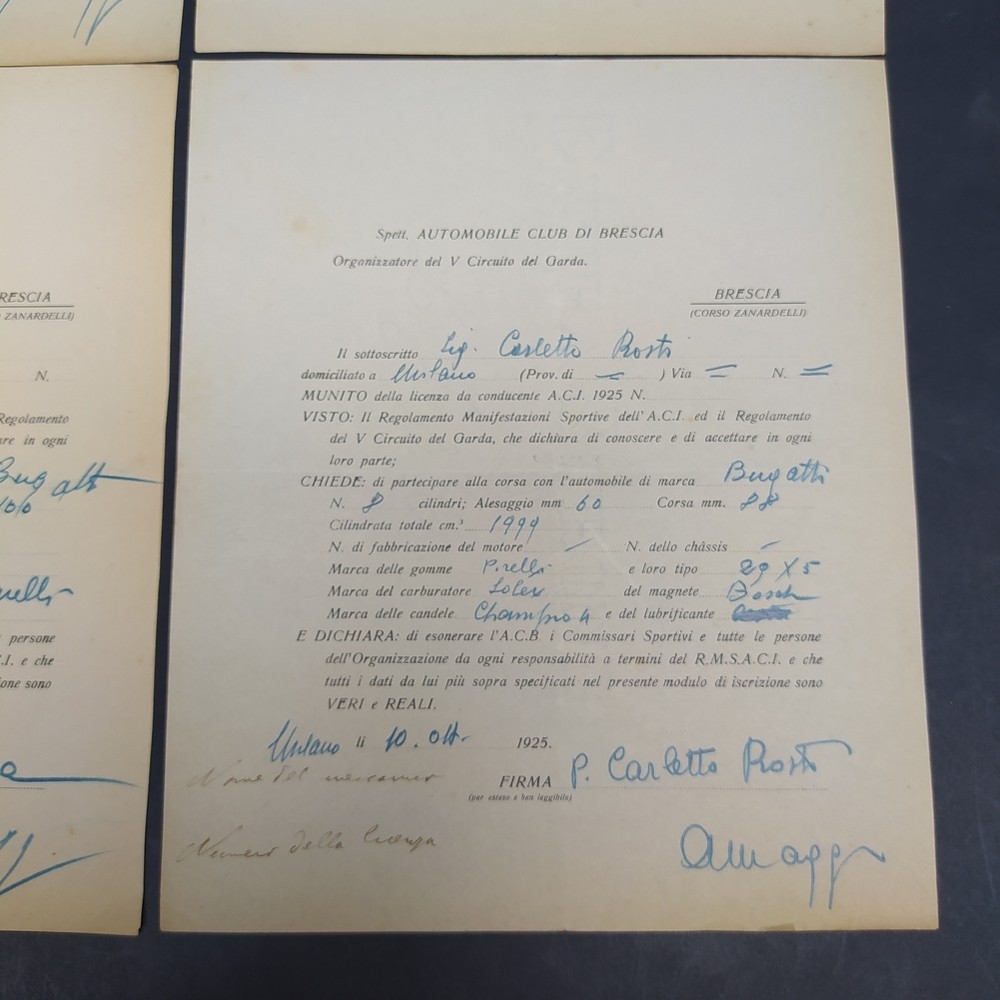 RESCIA
ZANARDELLI)
N.
Regolamento
re in ogni
Bugatti
persone
.I. e che
ione sono
Spett. AUTOMOBILE CLUB DI BRESCIA
Organizzatore del V Circuito del Garda.
BRESCIA
(CORSO ZANARDELLI)
Il sottoscritto Sig. Carletto Rosti
domiciliato a Milano (Prov. di = ) Via = N. =
MUNITO della licenza da conducente A.C.I. 1925 N.
VISTO: Il Regolamento Manifestazioni Sportive dell'A.C.I. ed il Regolamento
del V Circuito del Garda, che dichiara di conoscere e di accettare in ogni
loro parte;
CHIEDE: di partecipare alla corsa con l'automobile di marca Bugatti
N. 8 cilindri; Alesaggio mm 60 Corsa mm. 88
Cilindrata totale cm.³ 1999
N. di fabbricazione del motore — N. dello châssis —
Marca delle gomme Pirelli e loro tipo 29 X 5
Marca del carburatore Solex del magnete Bosch
Marca delle candele Champion e del lubrificante
E DICHIARA: di esonerare l'A.C.B i Commissari Sportivi e tutte le persone
dell'Organizzazione da ogni responsabilità a termini del R.M.S.A.C.I. e che
tutti i dati da lui più sopra specificati nel presente modulo di iscrizione sono
VERI e REALI.
Milano li 10. Ott. 1925.
Nome del
FIRMA P. Carletto Rosti
(per esteso e ben leggibile)
Numero della licenza
AMaggi